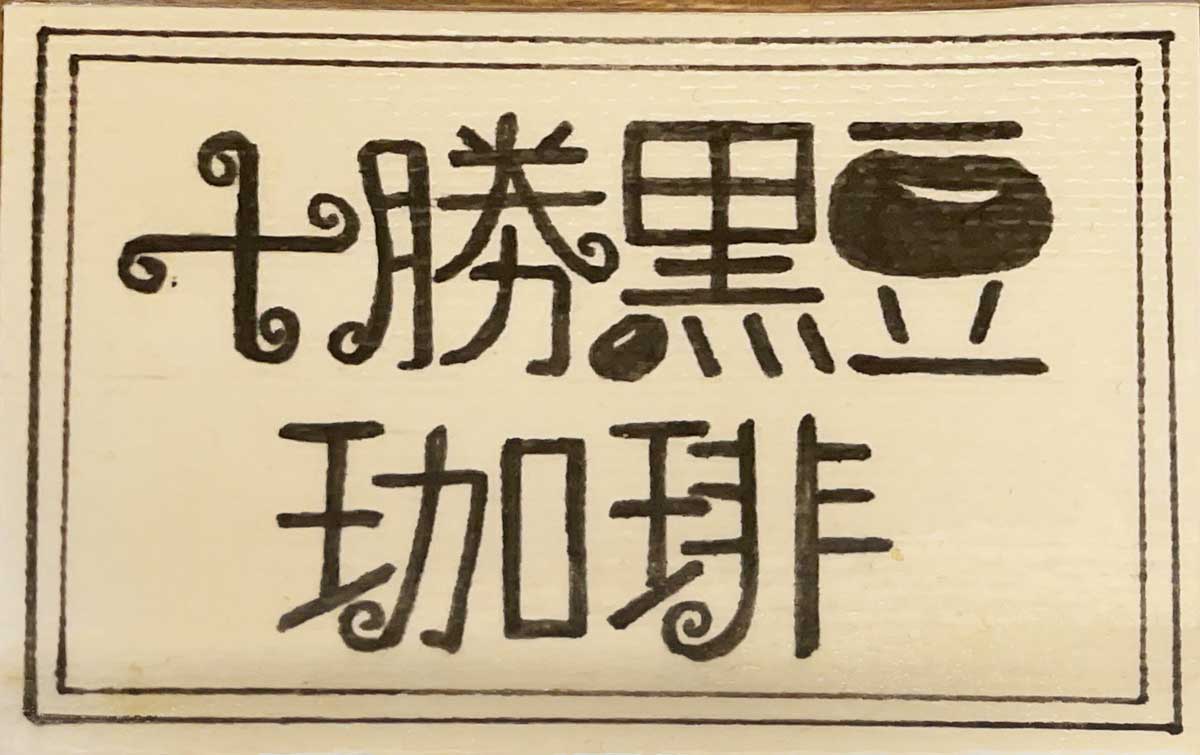 十勝黒豆
珈琲